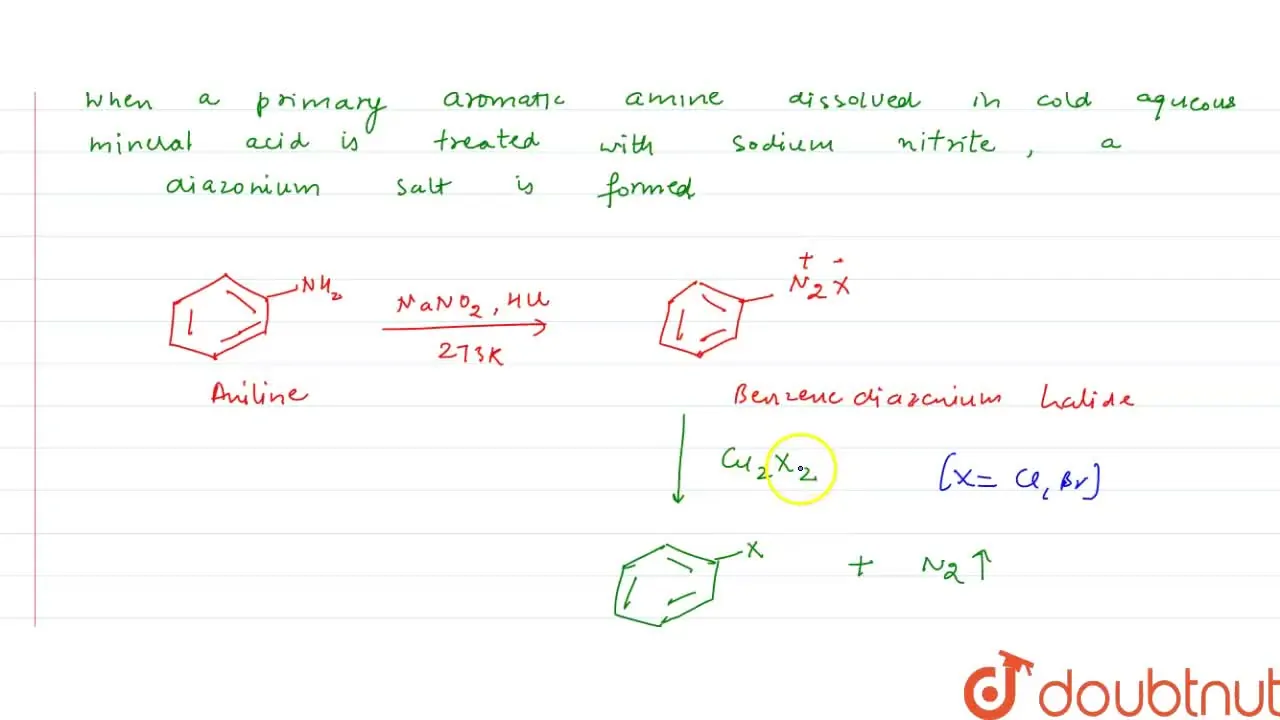 when a primary aromatic amine dissolved in cold aqueous
mineral acid is treated with sodium nitrite, a
diazonium salt is formed
NH2
NaNO2, HCl
273K
+ -
N2 X
Aniline
Benzene diazonium halide
Cu2X2
[X= Cl, Br]
X
+ N2 ↑
doubtnut